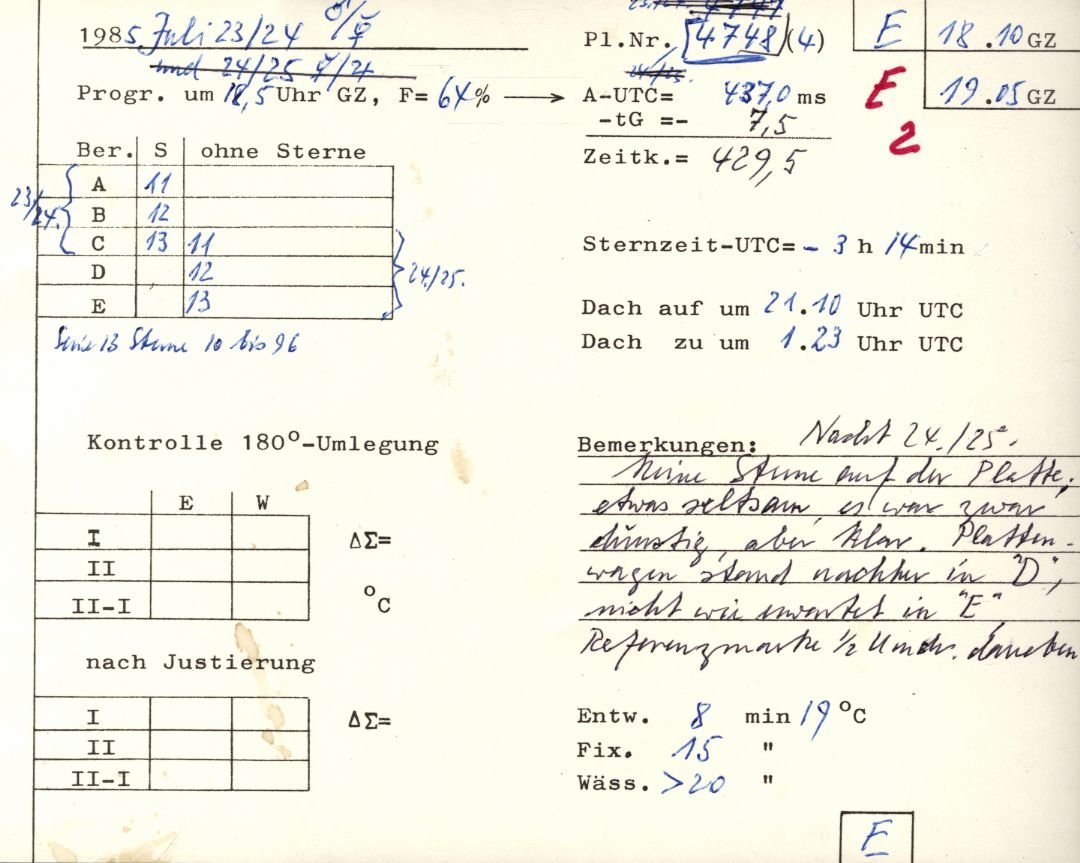 1985 Juli 23/24 ♂/☿
und 24/25 ☿/♃
Progr. um 18,5 Uhr GZ, F= 64%
Pl.Nr. [4748] (4)
A-UTC= 437,0 ms
-tG =- 7,5
Zeitk.= 429,5
E 18.10 GZ
E 19.05 GZ
2
Ber. S ohne Sterne
A 11
B 12
C 13 11
D 12
E 13
23/24.
24./25.
Serie 13 Sterne 10 bis 96
Sternzeit-UTC= - 3 h 14 min
Dach auf um 21.10 Uhr UTC
Dach zu um 1.23 Uhr UTC
Kontrolle 180°-Umlegung
E W
I ΔΣ=
II
II-I °C
nach Justierung
I ΔΣ=
II
II-I
Bemerkungen: Nacht 24./25.
Keine Sterne auf der Platte,
etwas seltsam, es war zwar
dunstig, aber klar. Platten-
wagen stand nachher in "D",
nicht wie erwartet in "E",
Referenzmarke 1/2 Umdr. daneben
Entw. 8 min 19 °C
Fix. 15 "
Wäss. >20 "
E